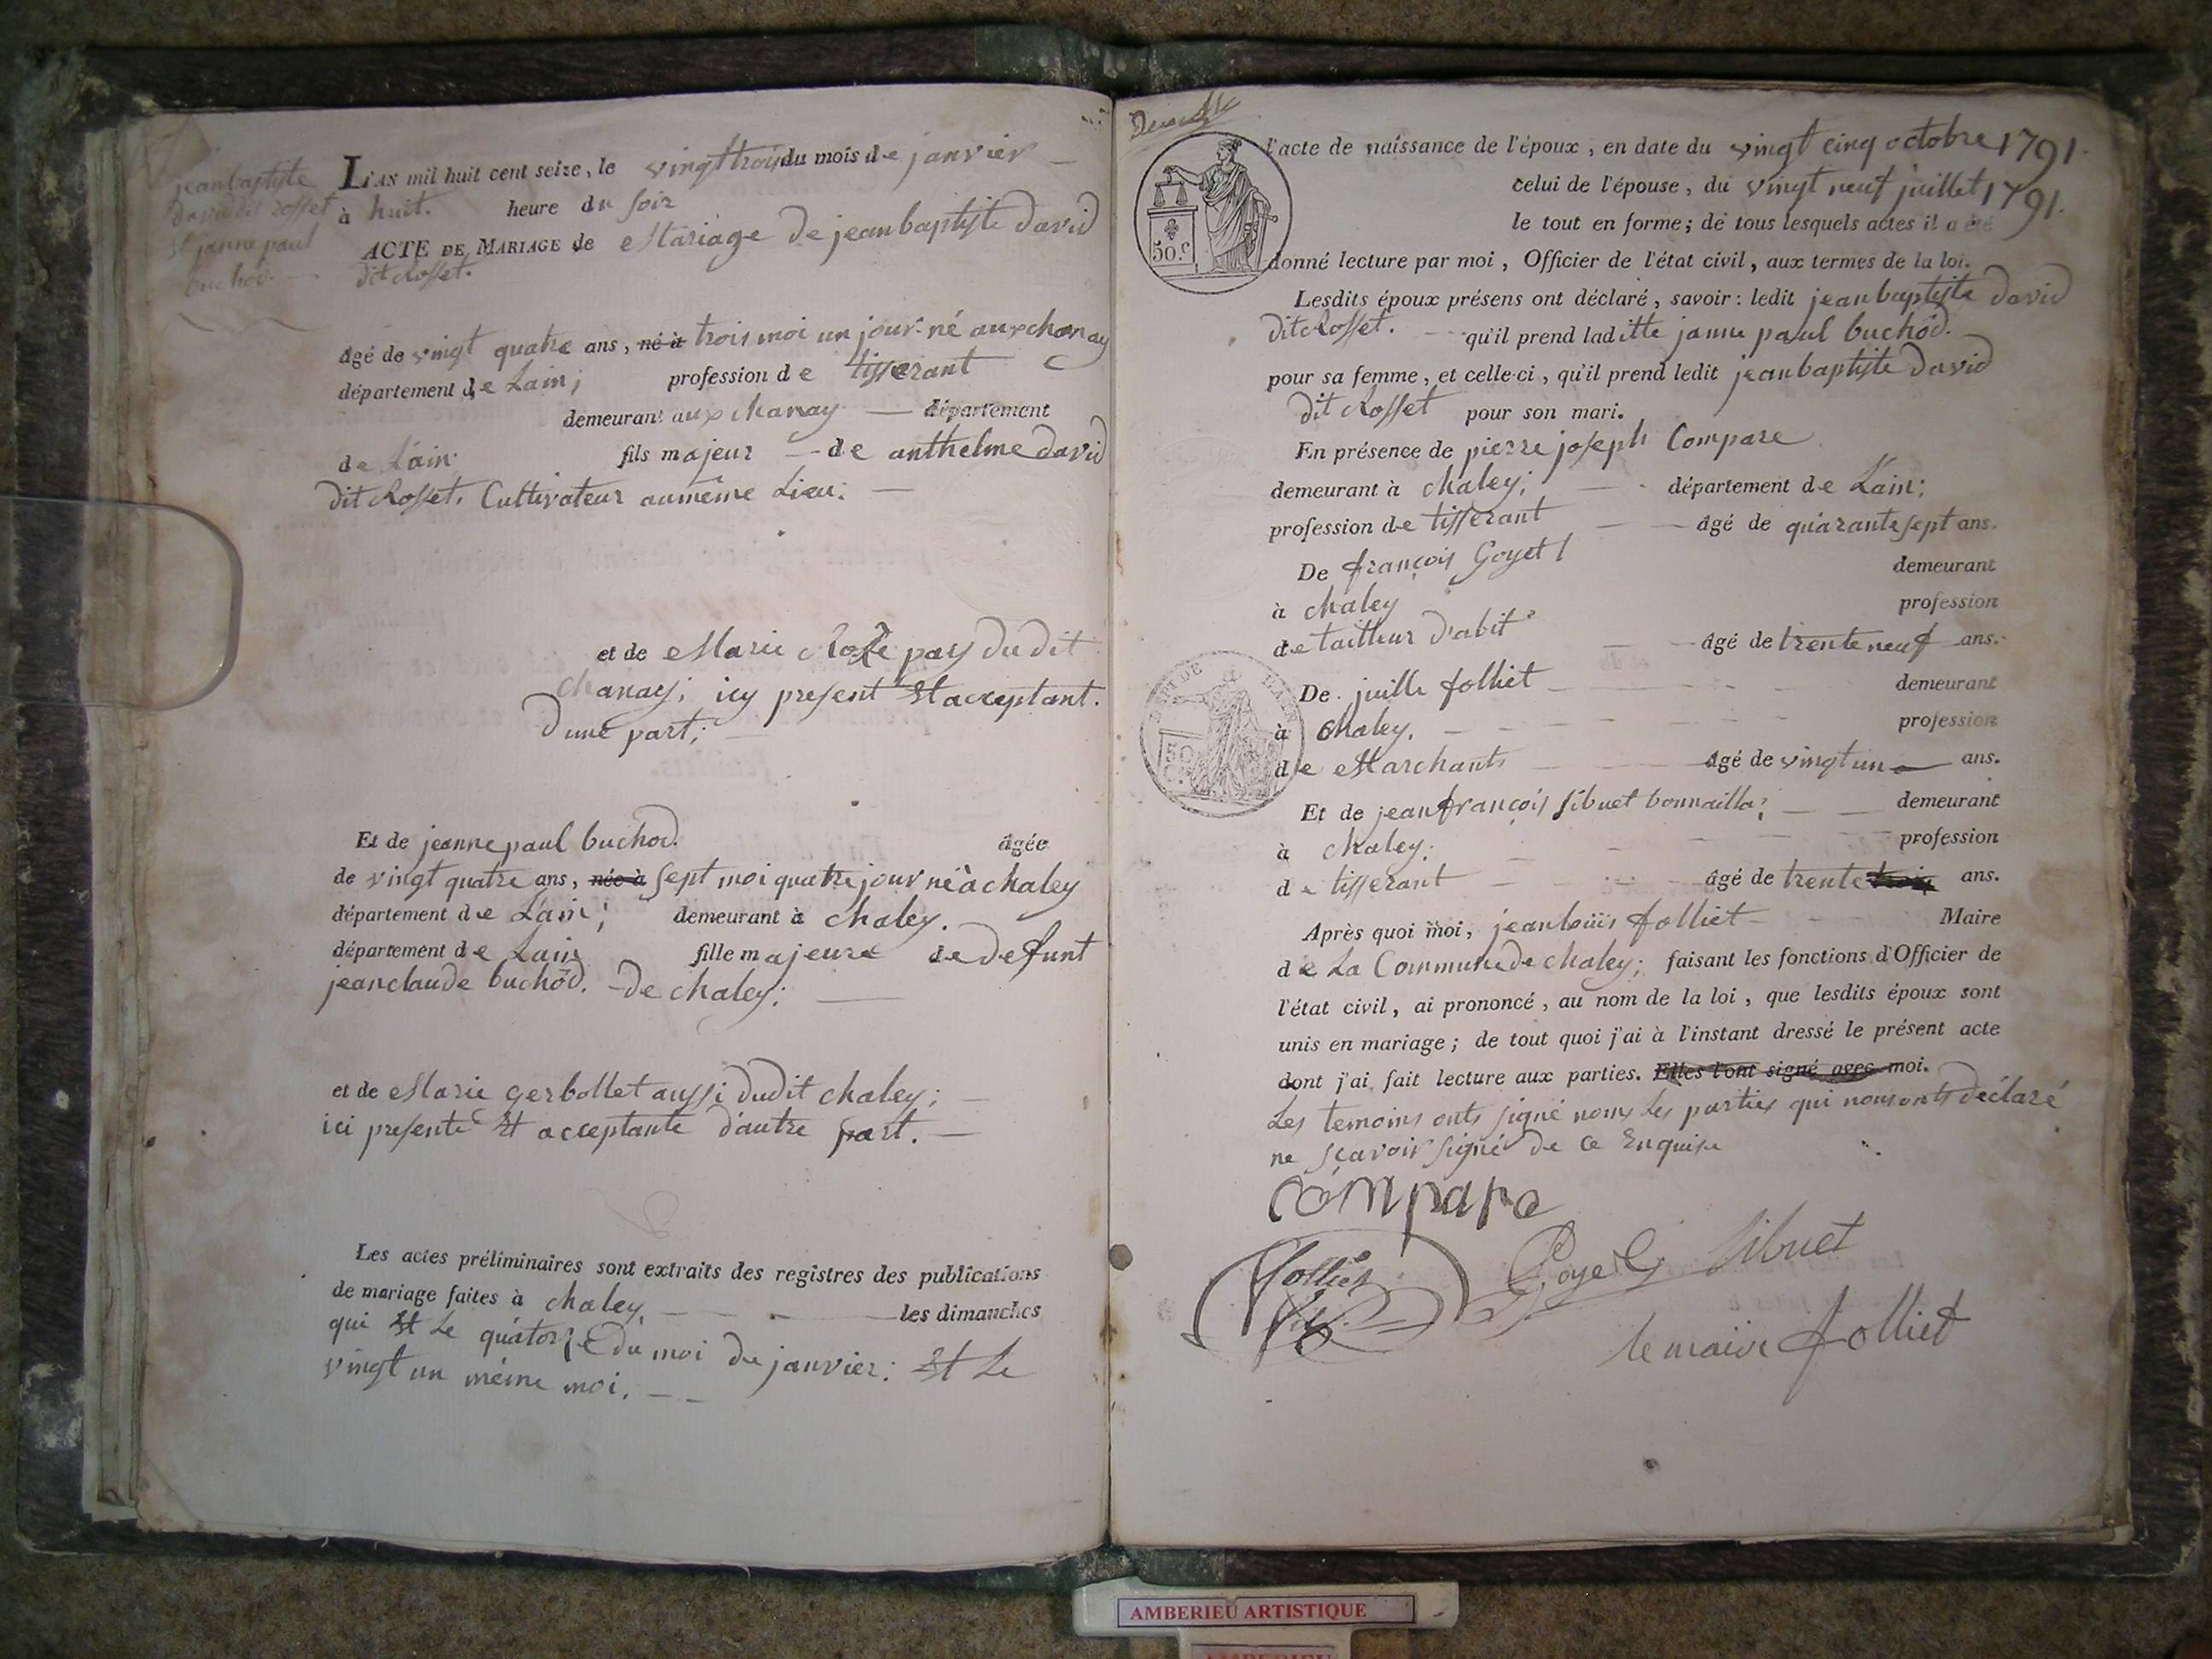 jeanbaptiste
david dit rosset
Et janne paul
buchod.
L'AN mil huit cent seize, le vingttrois du mois de janvier
à huit. heure du soir
ACTE DE MARIAGE de Mariage de jeanbaptiste david
dit Rosset.
âgé de vingt quatre ans, né à trois moi un jour né aux chanay
département de Lain; profession de tisserant
demeurant aux chanay département
de Lain fils majeur de anthelme david
dit Rosset. Cultivateur aumême Lieu.
et de Marie Roze pay du dit
chanay; icy present Et acceptant.
Dune part;
Et de jeanne paul buchod. âgée
de vingt quatre ans, née à sept moi quatre jour né à chaley
département de Lain; demeurant à chaley.
département de Lain fille majeure de defunt
jeanclaude buchod. de chaley;
et de Marie gerbollet aussi dudit chaley;
ici presente Et acceptante d'autre part.
Les actes préliminaires sont extraits des registres des publications
de mariage faites à chaley les dimanches
qui Et Le quatorze du moi de janvier: Et Le
vingt un même moi.
50.c
l'acte de naissance de l'époux, en date du vingt cinq octobre 1791.
celui de l'épouse, du vingt neuf juillet 1791.
le tout en forme; de tous lesquels actes il a été
donné lecture par moi, Officier de l'état civil, aux termes de la loi.
Lesdits époux présens ont déclaré, savoir: ledit jeanbaptiste david
dit Rosset. qu'il prend laditte janne paul buchod.
pour sa femme, et celle-ci, qu'il prend ledit jeanbaptiste david
dit Rosset pour son mari.
En présence de pierre joseph Compare
demeurant à chaley; département de Lain;
profession de tisserant âgé de quarante sept ans.
De françois Goyet demeurant
à chaley profession
de tailleur d'abit âgé de trente neuf ans.
De juille folliet demeurant
à chaley. profession
de Marchants âgé de vingt un ans.
Et de jean françois sibuet bonnailla; demeurant
à chaley; profession
de tisserant âgé de trente trois ans.
Après quoi moi, jeanlouis folliet Maire
de La Commune de chaley; faisant les fonctions d'Officier de
l'état civil, ai prononcé, au nom de la loi, que lesdits époux sont
unis en mariage; de tout quoi j'ai à l'instant dressé le présent acte
dont j'ai fait lecture aux parties. Elles l'ont signé avec moi.
Les temoins onts signé nom Les parties qui nousonts déclaré
ne sçavoir signé de ce Enquise
compare
folliet Goyet Sibuet
le maire folliet
AMBERIEU ARTISTIQUE
AMBERIEU